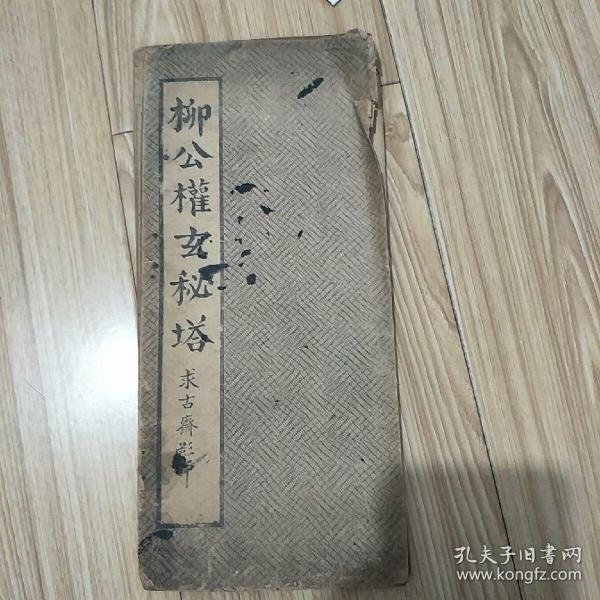 柳公權玄秘塔
求古齋影印
孔夫子旧書网
www.kongfz.com